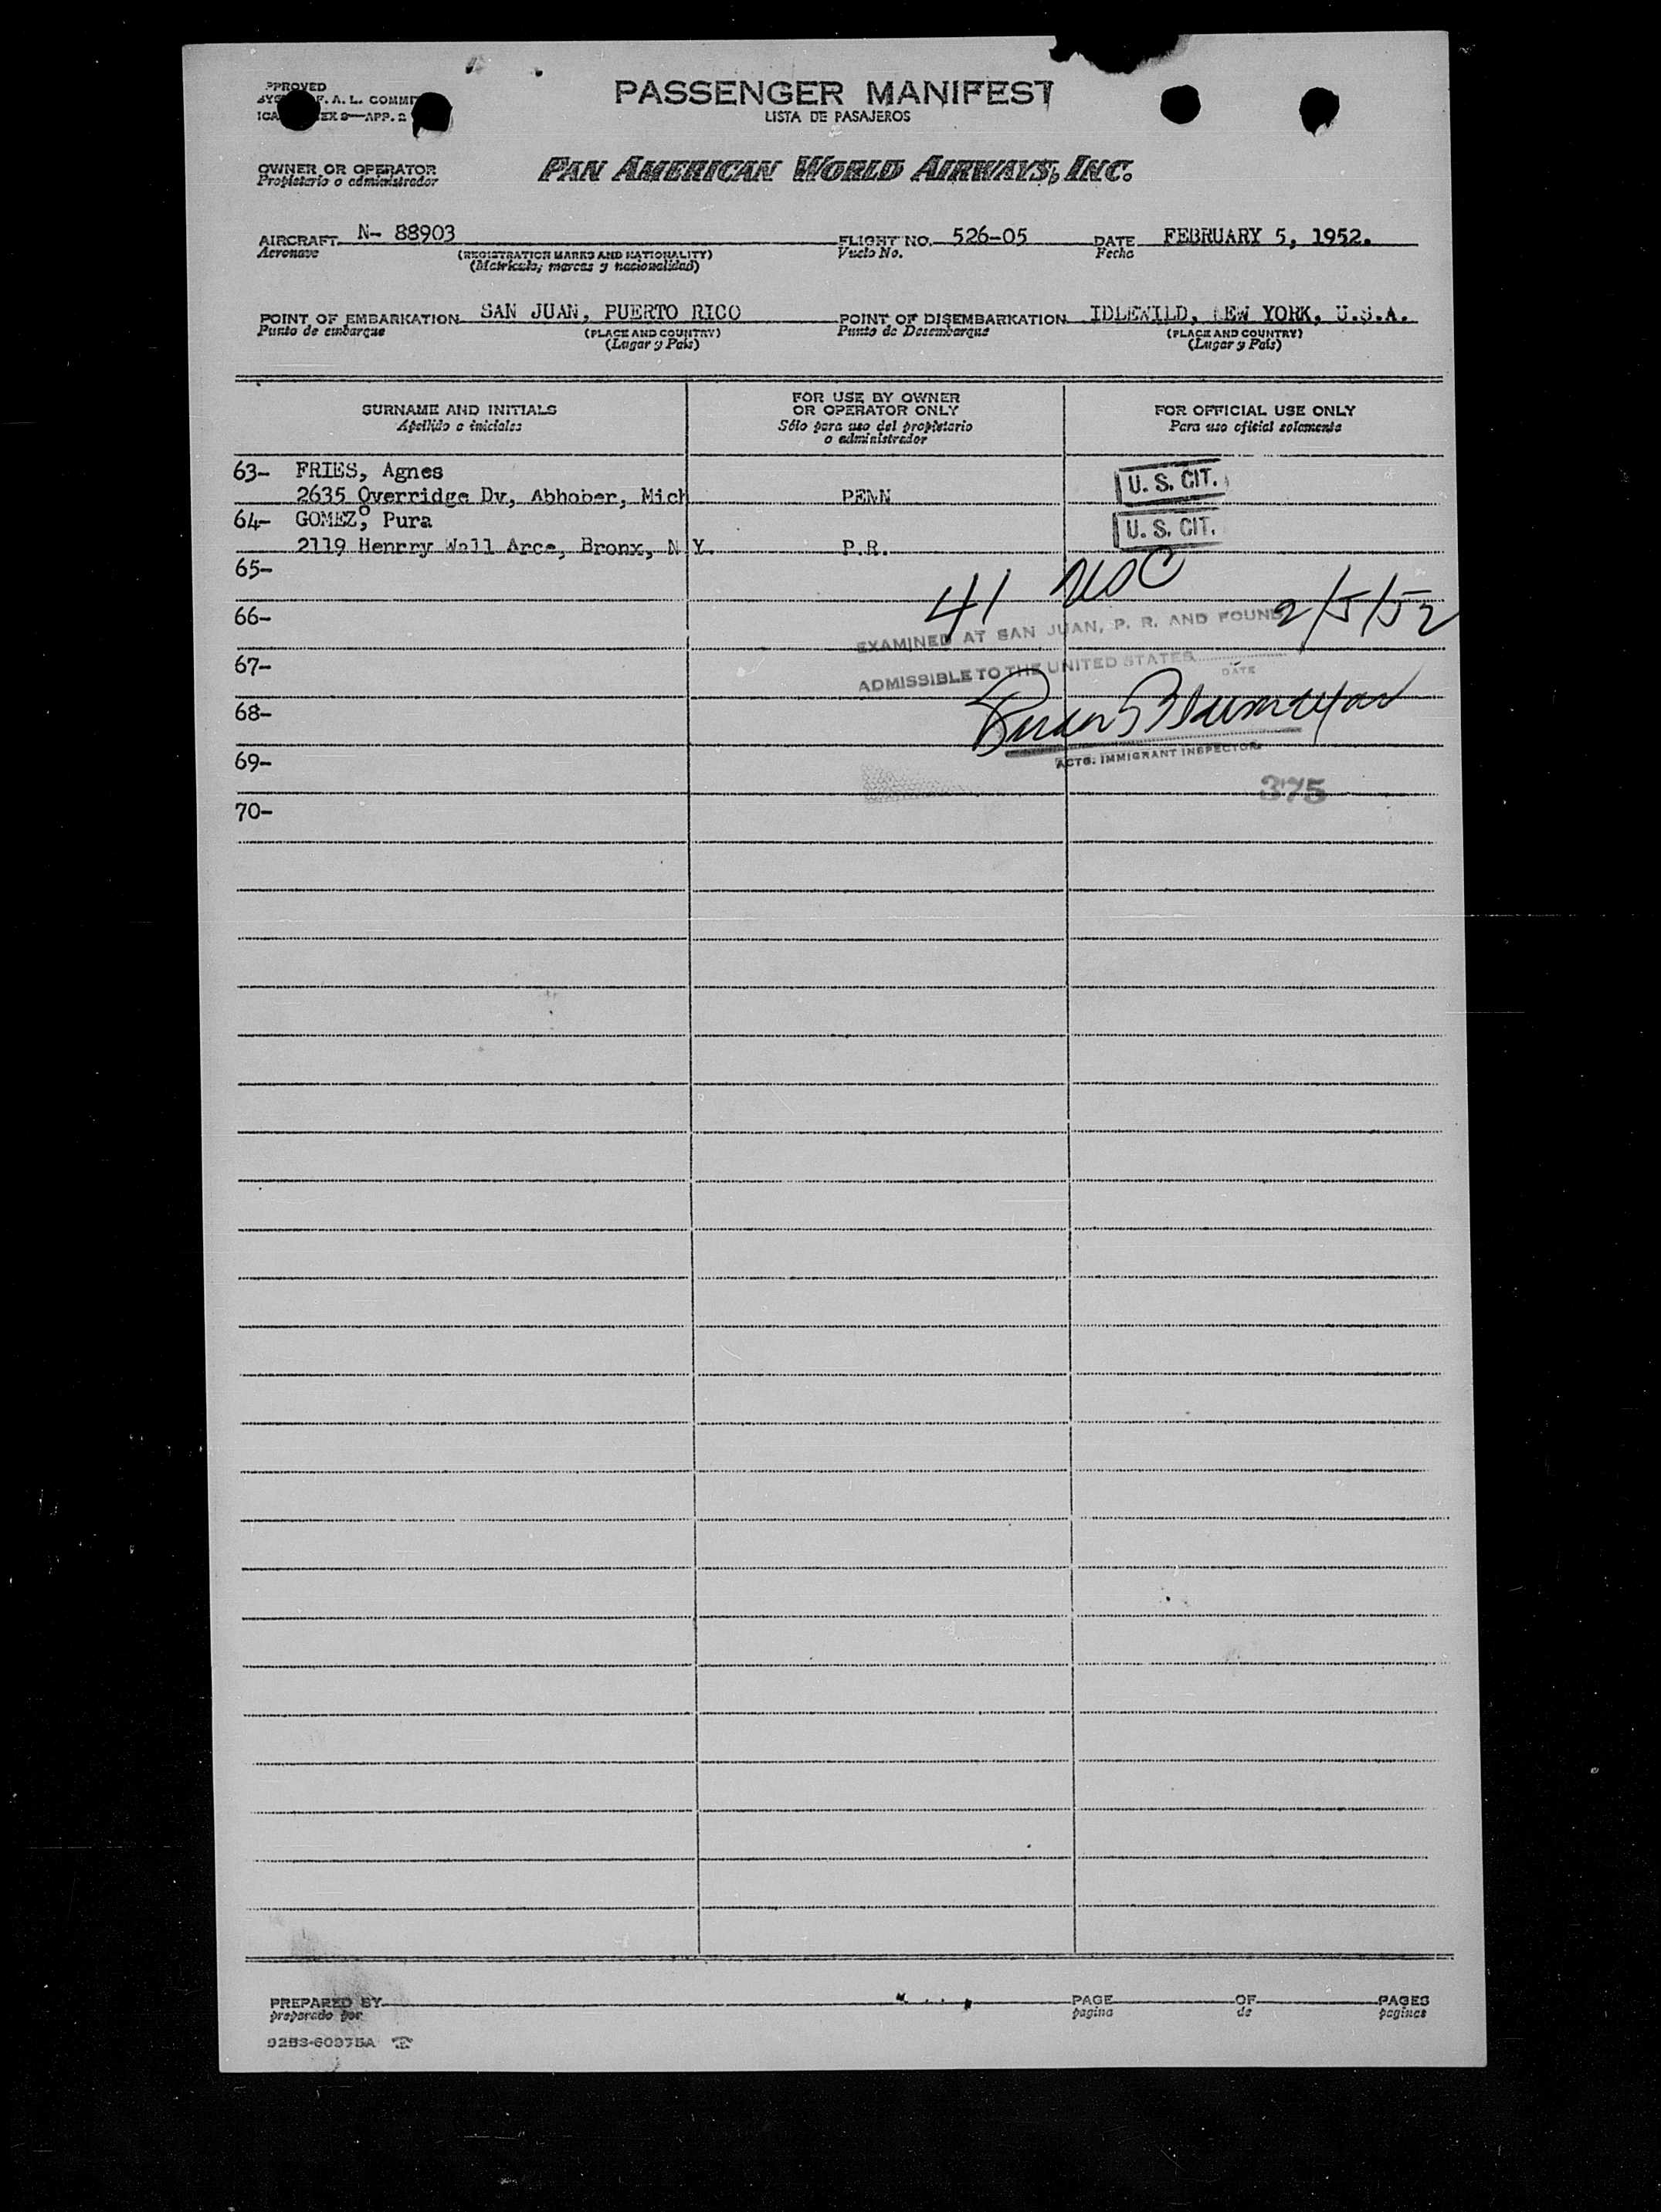 PPROVED
F. A. L. COMMI
ICA EX 9—APP. 2
PASSENGER MANIFEST
LISTA DE PASAJEROS
OWNER OR OPERATOR
Propietario o administrador
PAN AMERICAN WORLD AIRWAYS, INC.
AIRCRAFT N- 88903 FLIGHT NO. 526-05 DATE FEBRUARY 5, 1952.
Aeronave (REGISTRATION MARKS AND NATIONALITY) Vuelo No. Fecha
(Matricula, marcas y nacionalidad)
POINT OF EMBARKATION SAN JUAN, PUERTO RICO POINT OF DISEMBARKATION IDLEWILD, NEW YORK, U.S.A.
Punto de embarque (PLACE AND COUNTRY) Punto de Desembarque (PLACE AND COUNTRY)
(Lugar y País) (Lugar y País)
SURNAME AND INITIALS
Apellido e iniciales
FOR USE BY OWNER
OR OPERATOR ONLY
Sólo para uso del propietario
o administrador
FOR OFFICIAL USE ONLY
Para uso oficial solamente
63- FRIES, Agnes
2635 Overridge Dv, Abhober, Mich PENN U. S. CIT.
64- GOMEZ, Pura
2119 Henrry Wall Arce, Bronx, N.Y. P.R. U. S. CIT.
65-
41 USC
66- 2/5/52
EXAMINED AT SAN JUAN, P. R. AND FOUND
67-
ADMISSIBLE TO THE UNITED STATES
DATE
68-
69-
ACTG. IMMIGRANT INSPECTOR
375
70-
PREPARED BY PAGE OF PAGES
preparado por pagina de pagines
9253-60375A